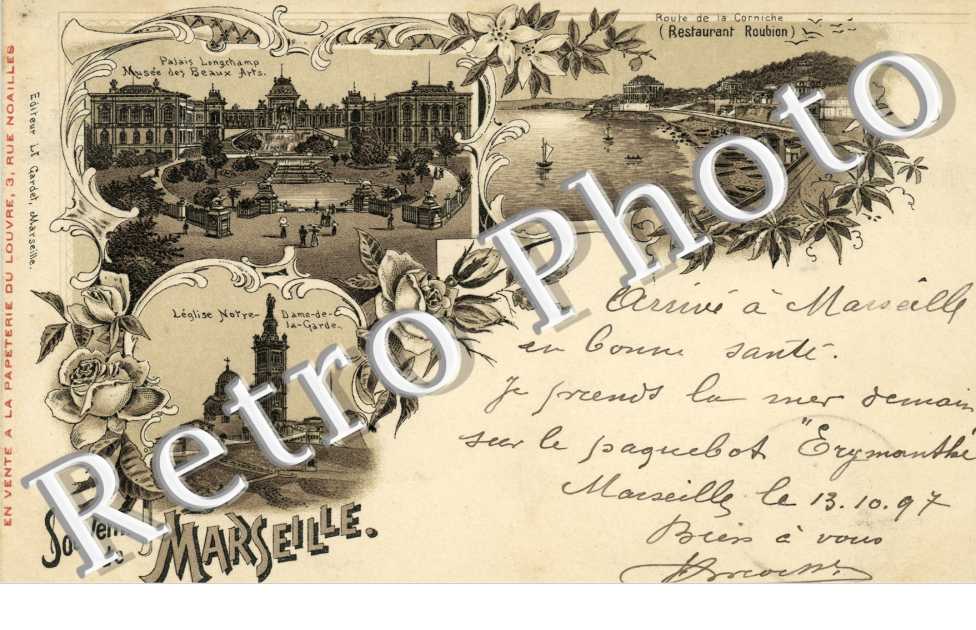 EN VENTE A LA PAPETERIE DU LOUVRE, 3, RUE NOAILLES
Editeur Lt Gardel, Marseille.
Palais Longchamp
Musée des Beaux Arts.
Route de la Corniche
(Restaurant Roubion)
L'église Notre-Dame-de-
la-Garde.
Souvenir
de
MARSEILLE.
Arrivé à Marseille
en bonne santé.
Je prends la mer demain
sur le paquebot "Erymanthe
Marseille le 13.10.97
Bien à vous
Retro Photo